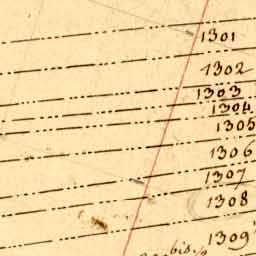 1301
1302
1303
1304
1305
1306
1307
1308
1309
bis